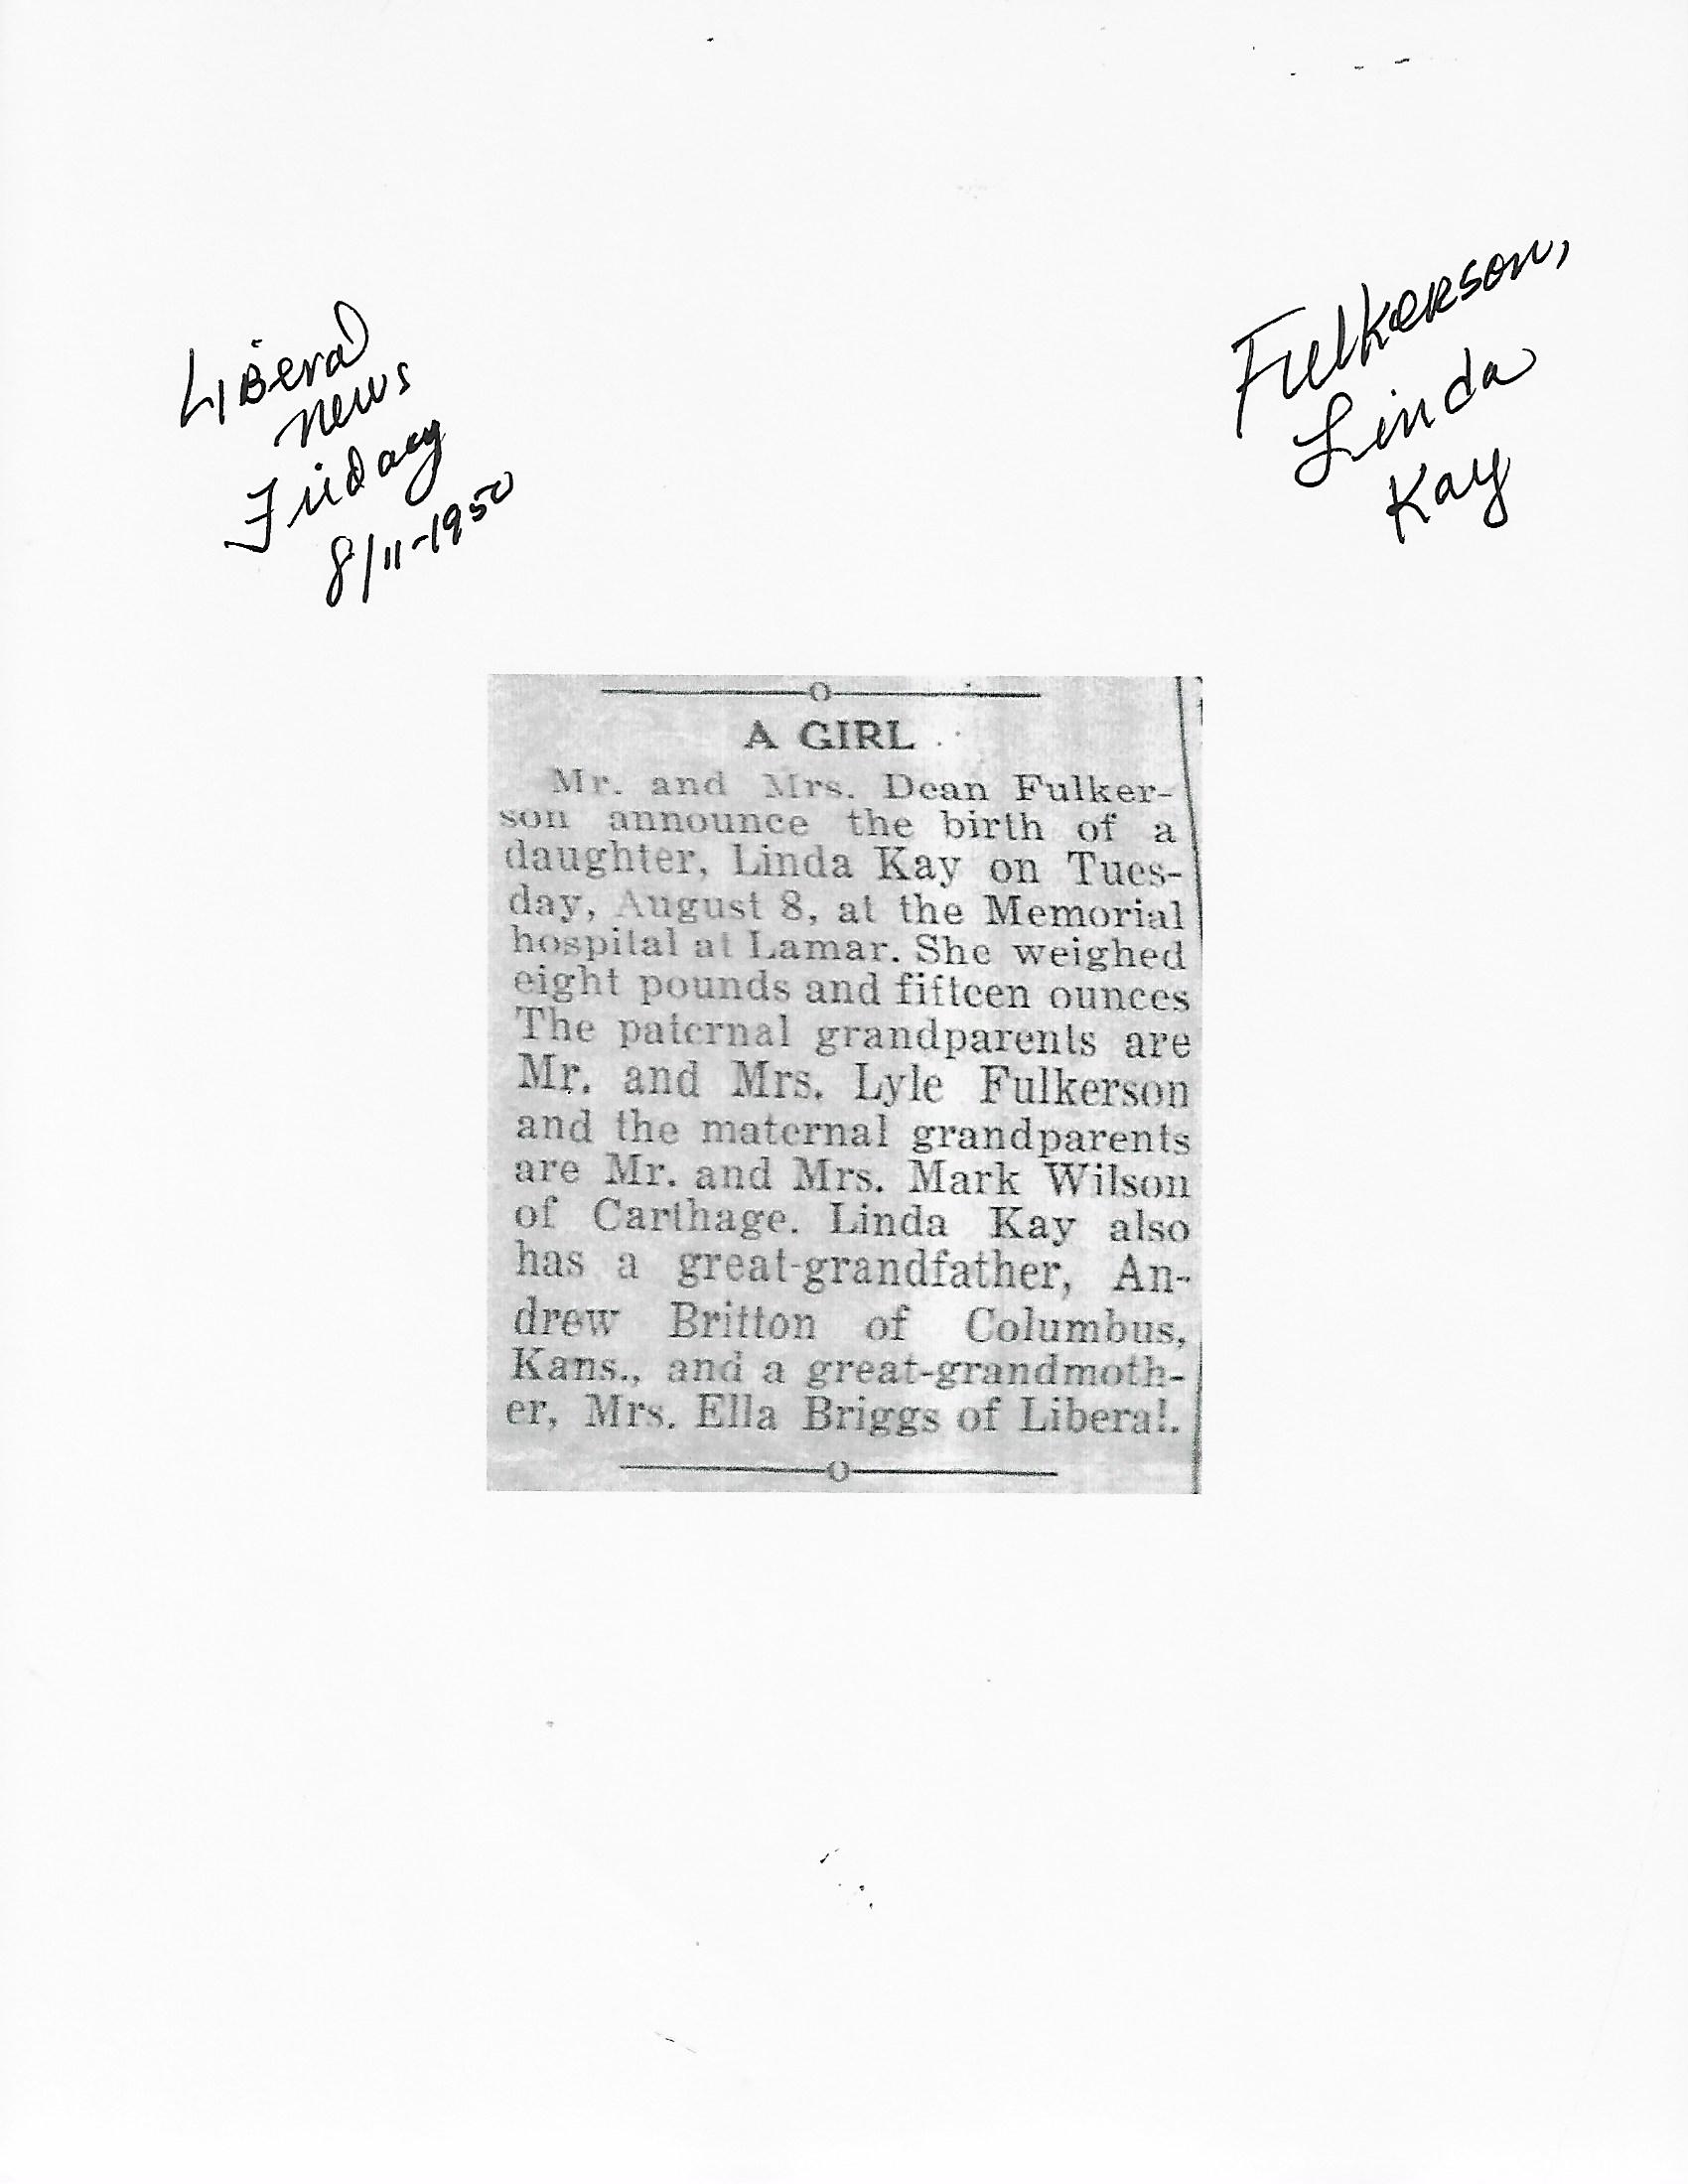 Liberal
news
Friday
8/11-1950
Fulkerson,
Linda
Kay
A GIRL
Mr. and Mrs. Dean Fulker-
son announce the birth of a
daughter, Linda Kay on Tues-
day, August 8, at the Memorial
hospital at Lamar. She weighed
eight pounds and fifteen ounces
The paternal grandparents are
Mr. and Mrs. Lyle Fulkerson
and the maternal grandparents
are Mr. and Mrs. Mark Wilson
of Carthage. Linda Kay also
has a great-grandfather, An-
drew Britton of Columbus,
Kans., and a great-grandmoth-
er, Mrs. Ella Briggs of Liberal.